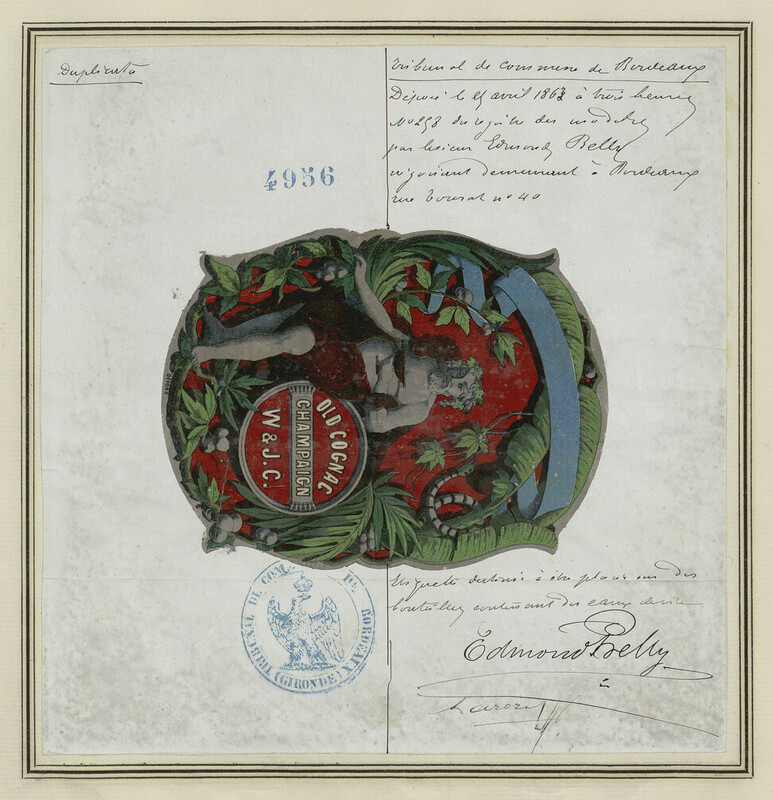 Duplicata
Tribunal de Commerce de Bordeaux
Déposé le avril 186 à trois heures
No 258 du registre des modèles
par le sieur Edmond Belly
négociant demeurant à Bordeaux
rue no 40
4956
OLD COGNAC
CHAMPAIGN
W & J.C.
TRIBUNAL DE COM. DE BORDEAUX (GIRONDE)
Etiquette destinée à être placée sur des
bouteilles contenant des eaux de vie
Edmond Belly